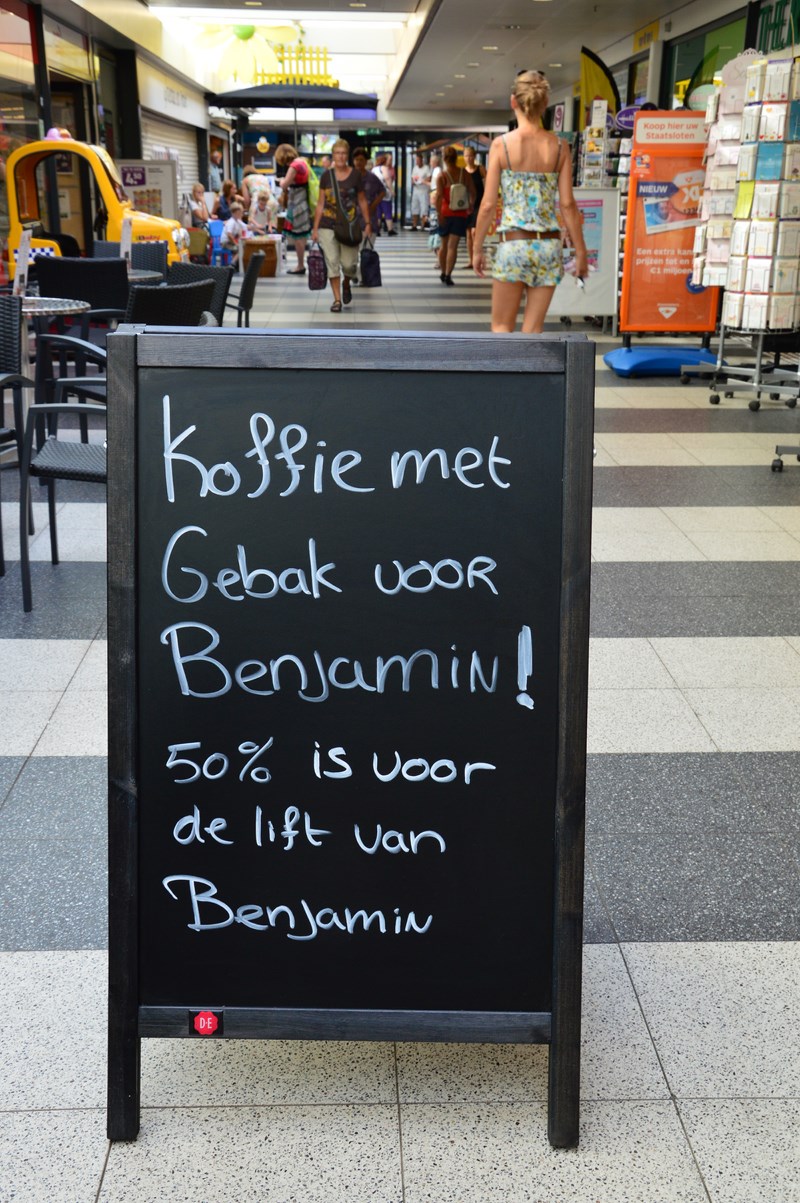 Koop hier uw
Staatsloten
NIEUW
XL
Een extra kans
prijzen tot en
€1 miljoen
Koffie met
Gebak voor
Benjamin!
50% is voor
de lift van
Benjamin
D·E